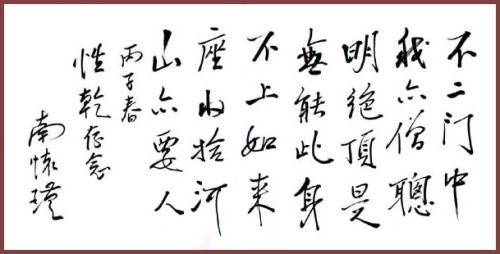 不二门中
我亦僧聰
明絕頂是
無能此身
不上如来
座收拾河
山亦要人
丙子春
性乾存念
南懷瑾